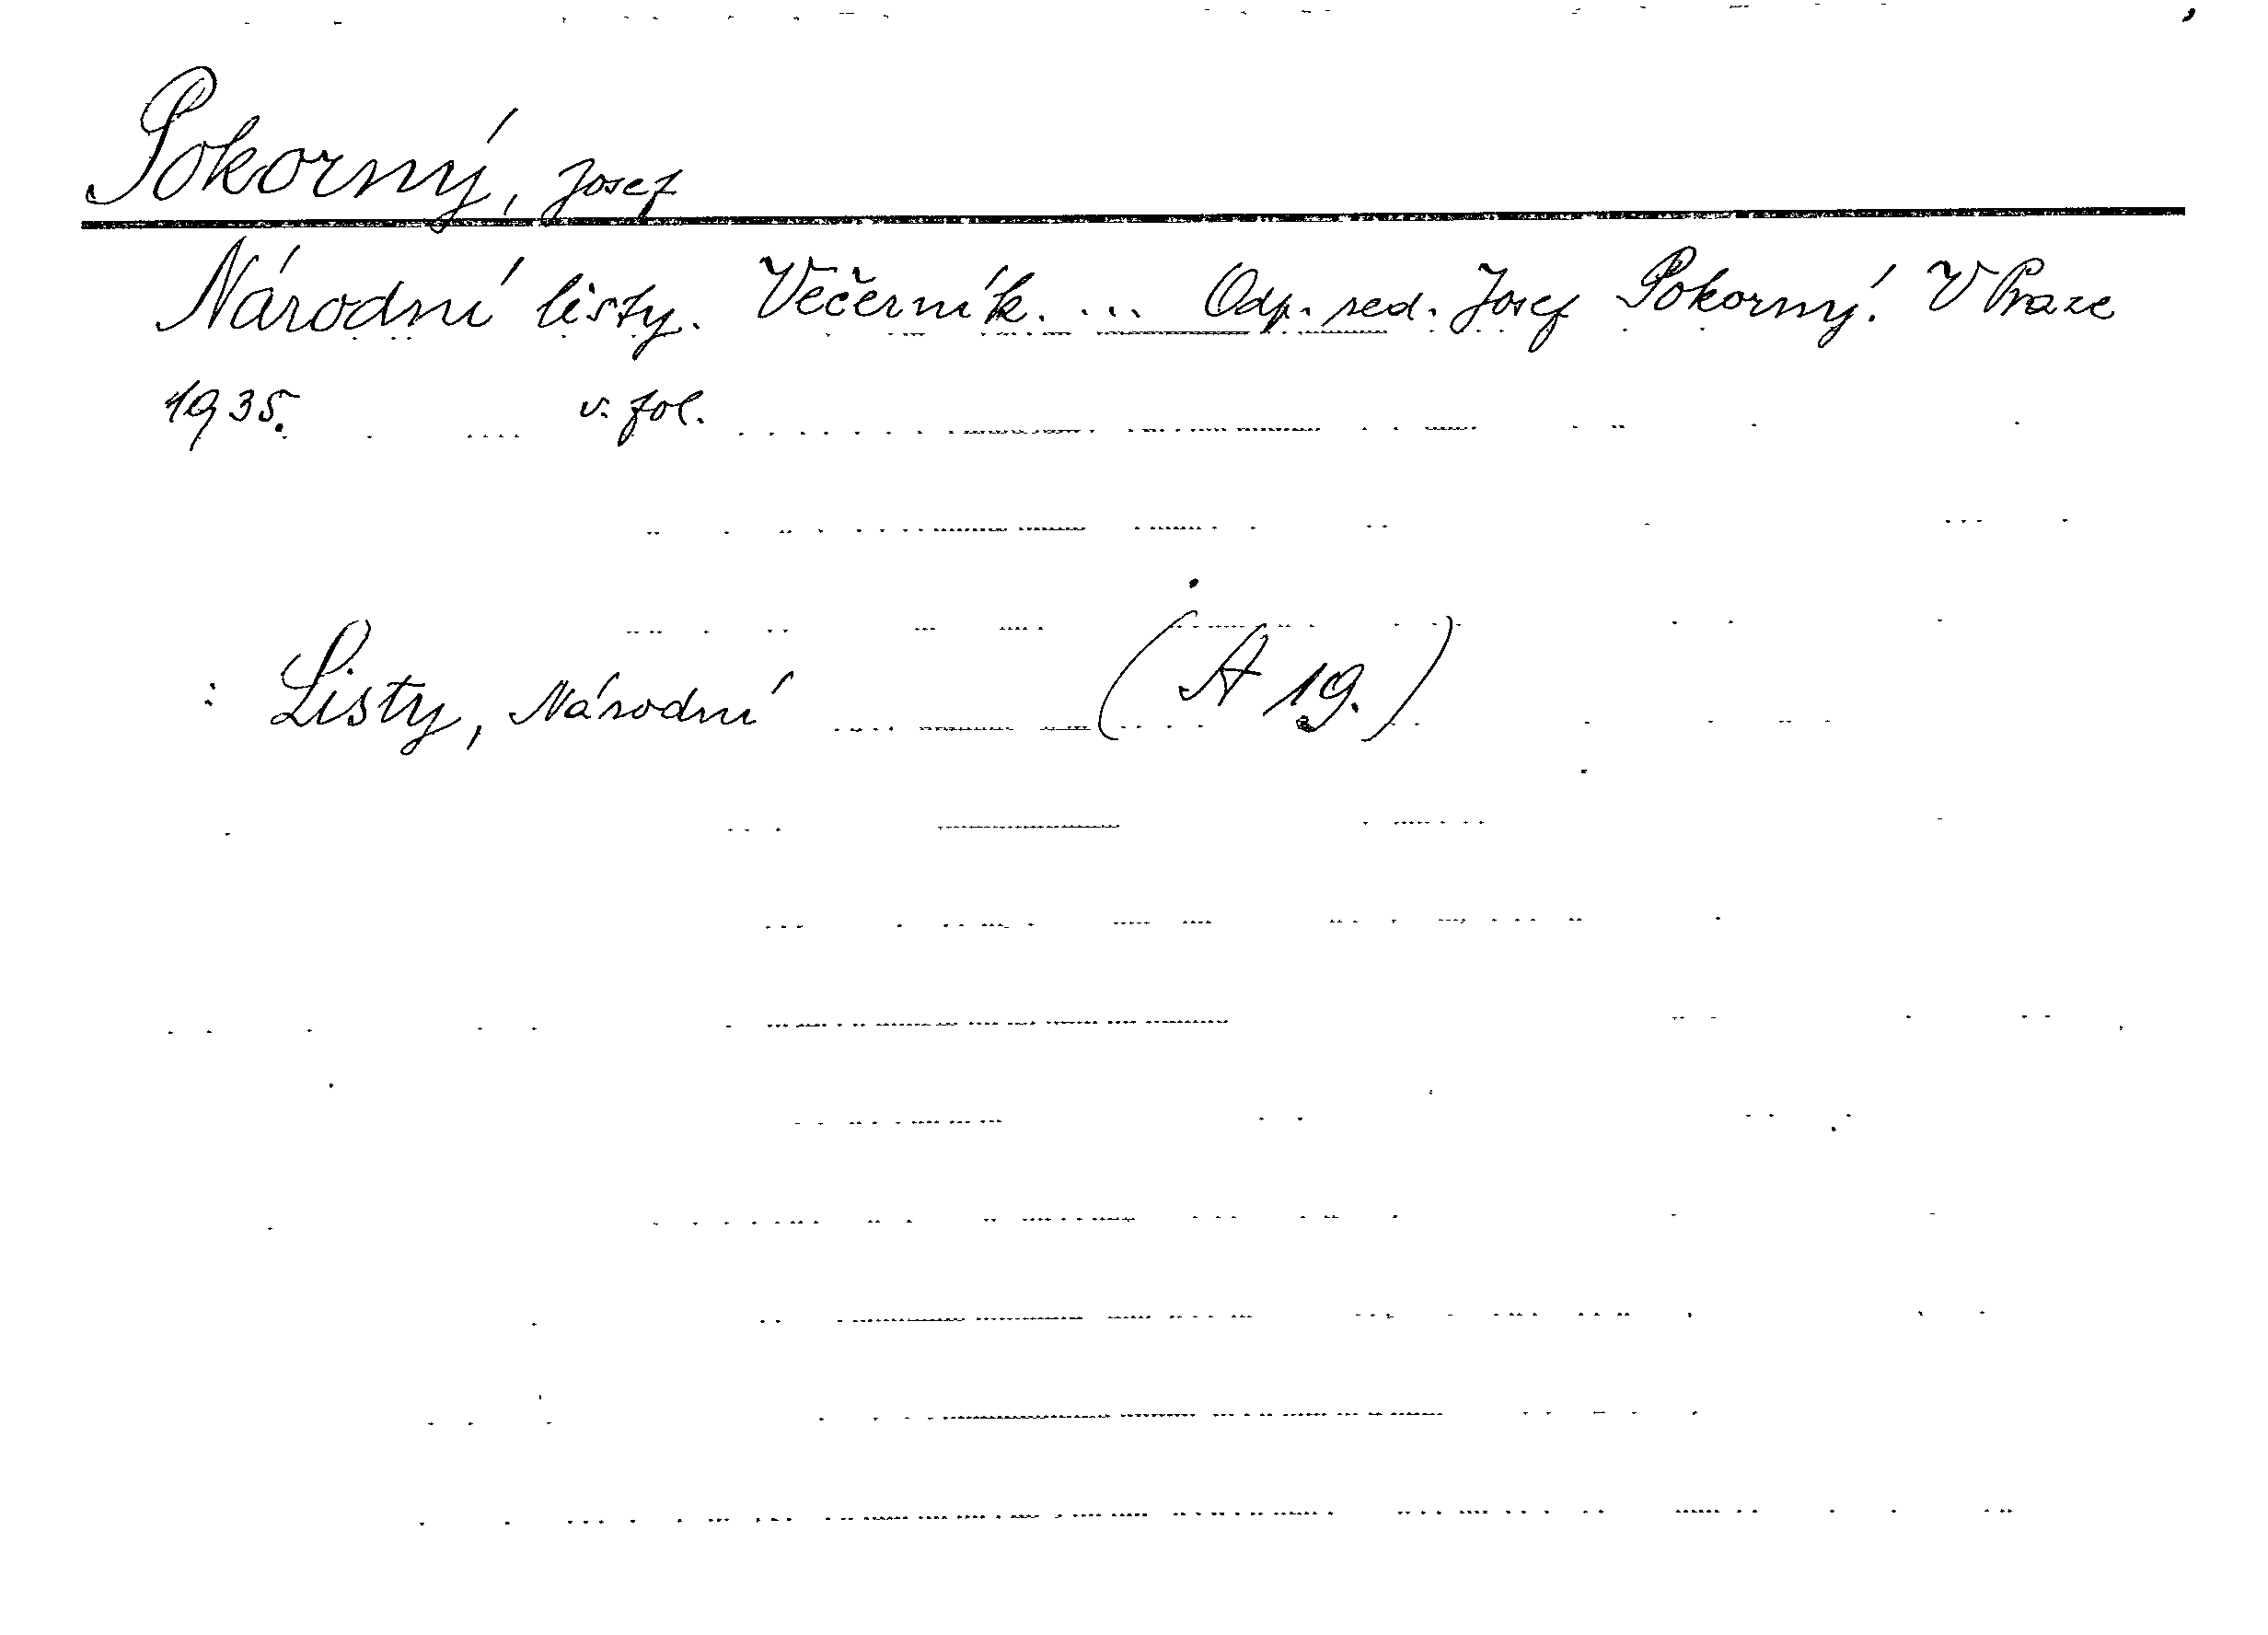 Pokorný, Josef
Národní listy. Večerník. ... Odp. red. Josef Pokorný. V Praze
1935. v. fol.
: Listy, Národní (A 19.)